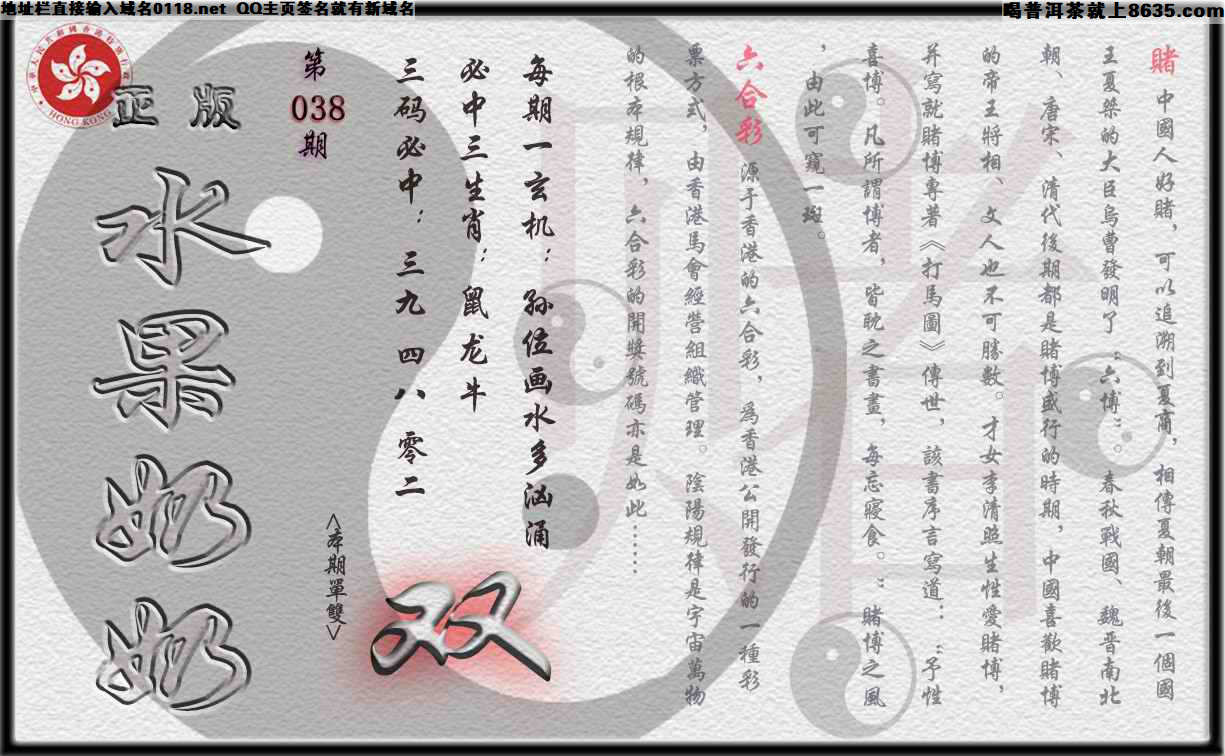 地址栏直接输入域名0118.net QQ主页签名就有新域名
喝普洱茶就上8635.com
賭 中國人好賭，可以追溯到夏商，相傳夏朝最後一個國
王夏桀的大臣烏曹發明了“六博”。春秋戰國、魏晋南北
朝、唐宋、清代後期都是賭博盛行的時期，中國喜歡賭博
的帝王將相、文人也不可勝數。才女李清照生性愛賭博，
并寫就賭博專著《打馬圖》傳世，該書序言寫道：“予性
喜博。凡所謂博者，皆耽之書晝，每忘寢食。”賭博之風
，由此可窺一斑。
六合彩 源于香港的六合彩，爲香港公開發行的一種彩
票方式，由香港馬會經營組織管理。陰陽規律是宇宙萬物
的根本規律，六合彩的開獎號碼亦是如此……
每期一玄机：孙位画水多汹涌
必中三生肖：鼠龙牛
三码必中：三九 四八 零二
第
038
期
<本期單雙>
双
正版
水果奶奶
HONG KONG